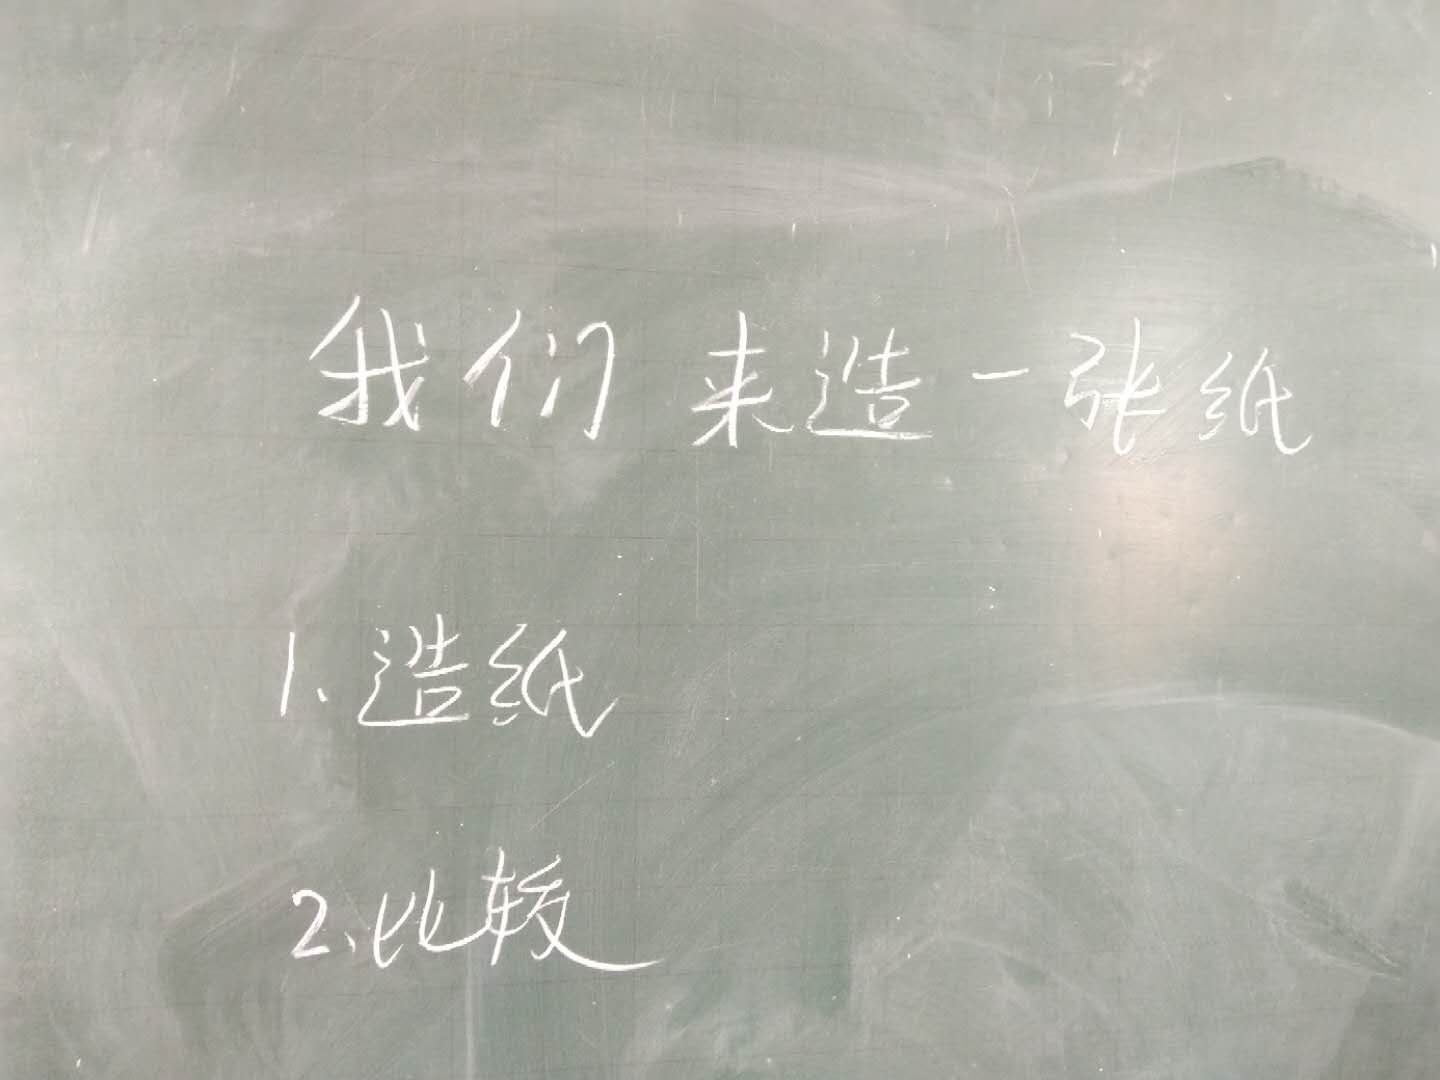 我们来造一张纸
1.造纸
2.比较